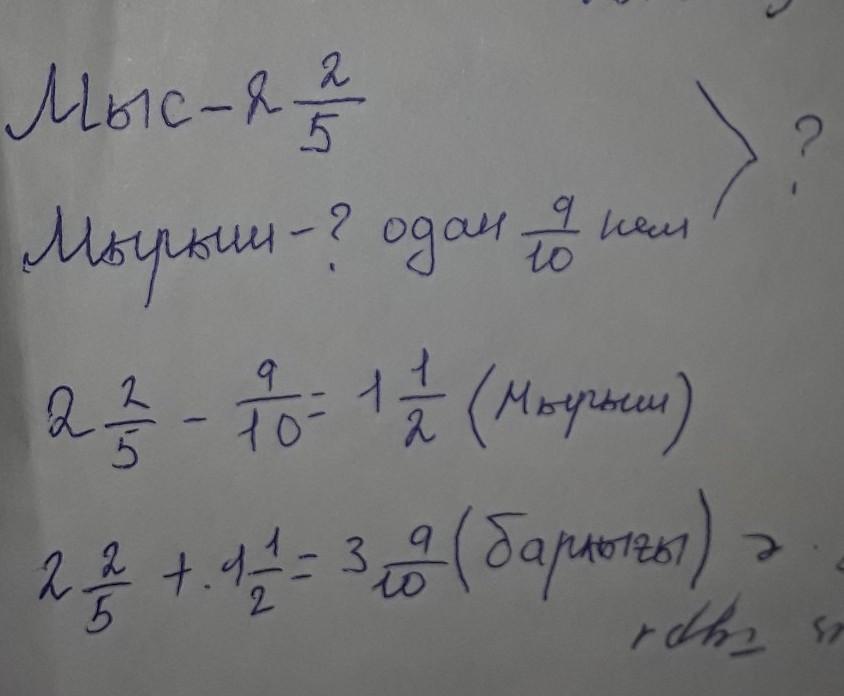 Мыс - 2 2/5
Мырыш - ? одан 9/10 кем > ?
2 2/5 - 9/10 = 1 1/2 (Мырыш)
2 2/5 + 1 1/2 = 3 9/10 (барлығы)